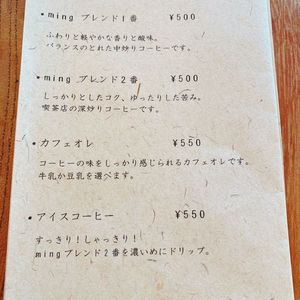 • ming ブレンド1番 ¥500
ふわりと軽やかな香りと酸味。
バランスのとれた中炒りコーヒーです。
• ming ブレンド2番 ¥500
しっかりとしたコク、ゆったりした苦み。
喫茶店の深炒りコーヒーです。
• カフェオレ ¥550
コーヒーの味をしっかり感じられるカフェオレです。
牛乳か豆乳を選べます。
• アイスコーヒー ¥550
すっきり！しゃっきり！
mingブレンド2番を濃いめにドリップ。